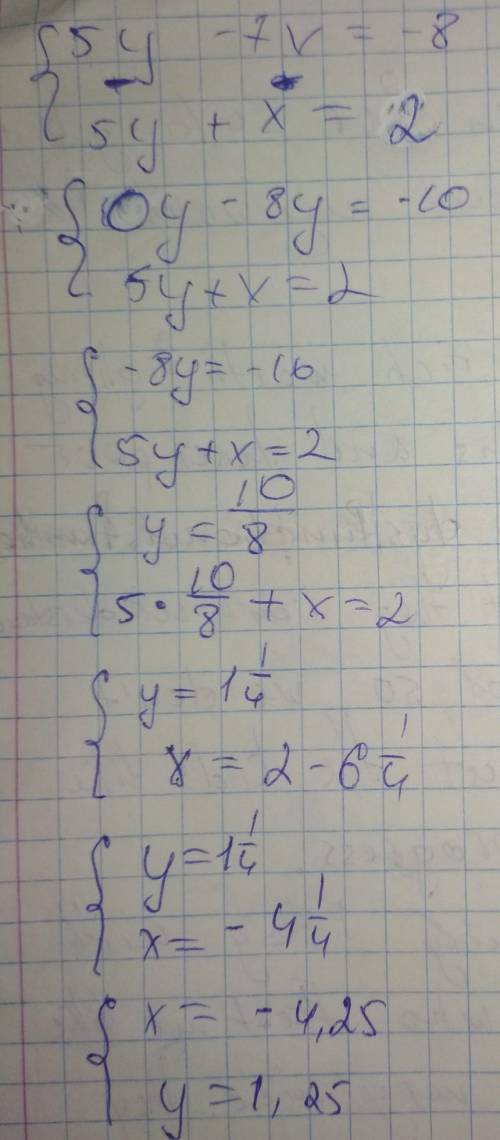 5y - 7x = -8
5y + x = 2
0y - 8y = -10
5y + x = 2
-8y = -10
5y + x = 2
y = 10/8
5 · 10/8 + x = 2
y = 1 1/4
x = 2 - 6 1/4
y = 1 1/4
x = - 4 1/4
x = - 4,25
y = 1,25